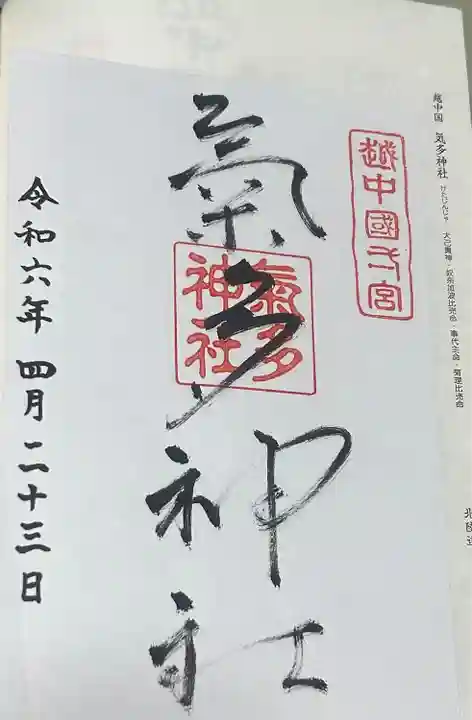 越中国 気多神社 けたじんじゃ 大己貴神・奴奈加波比売命・事代主命・菊理比売命
北陸道
越中國一宮
氣多神社
氣多神社
令和六年 四月二十三日